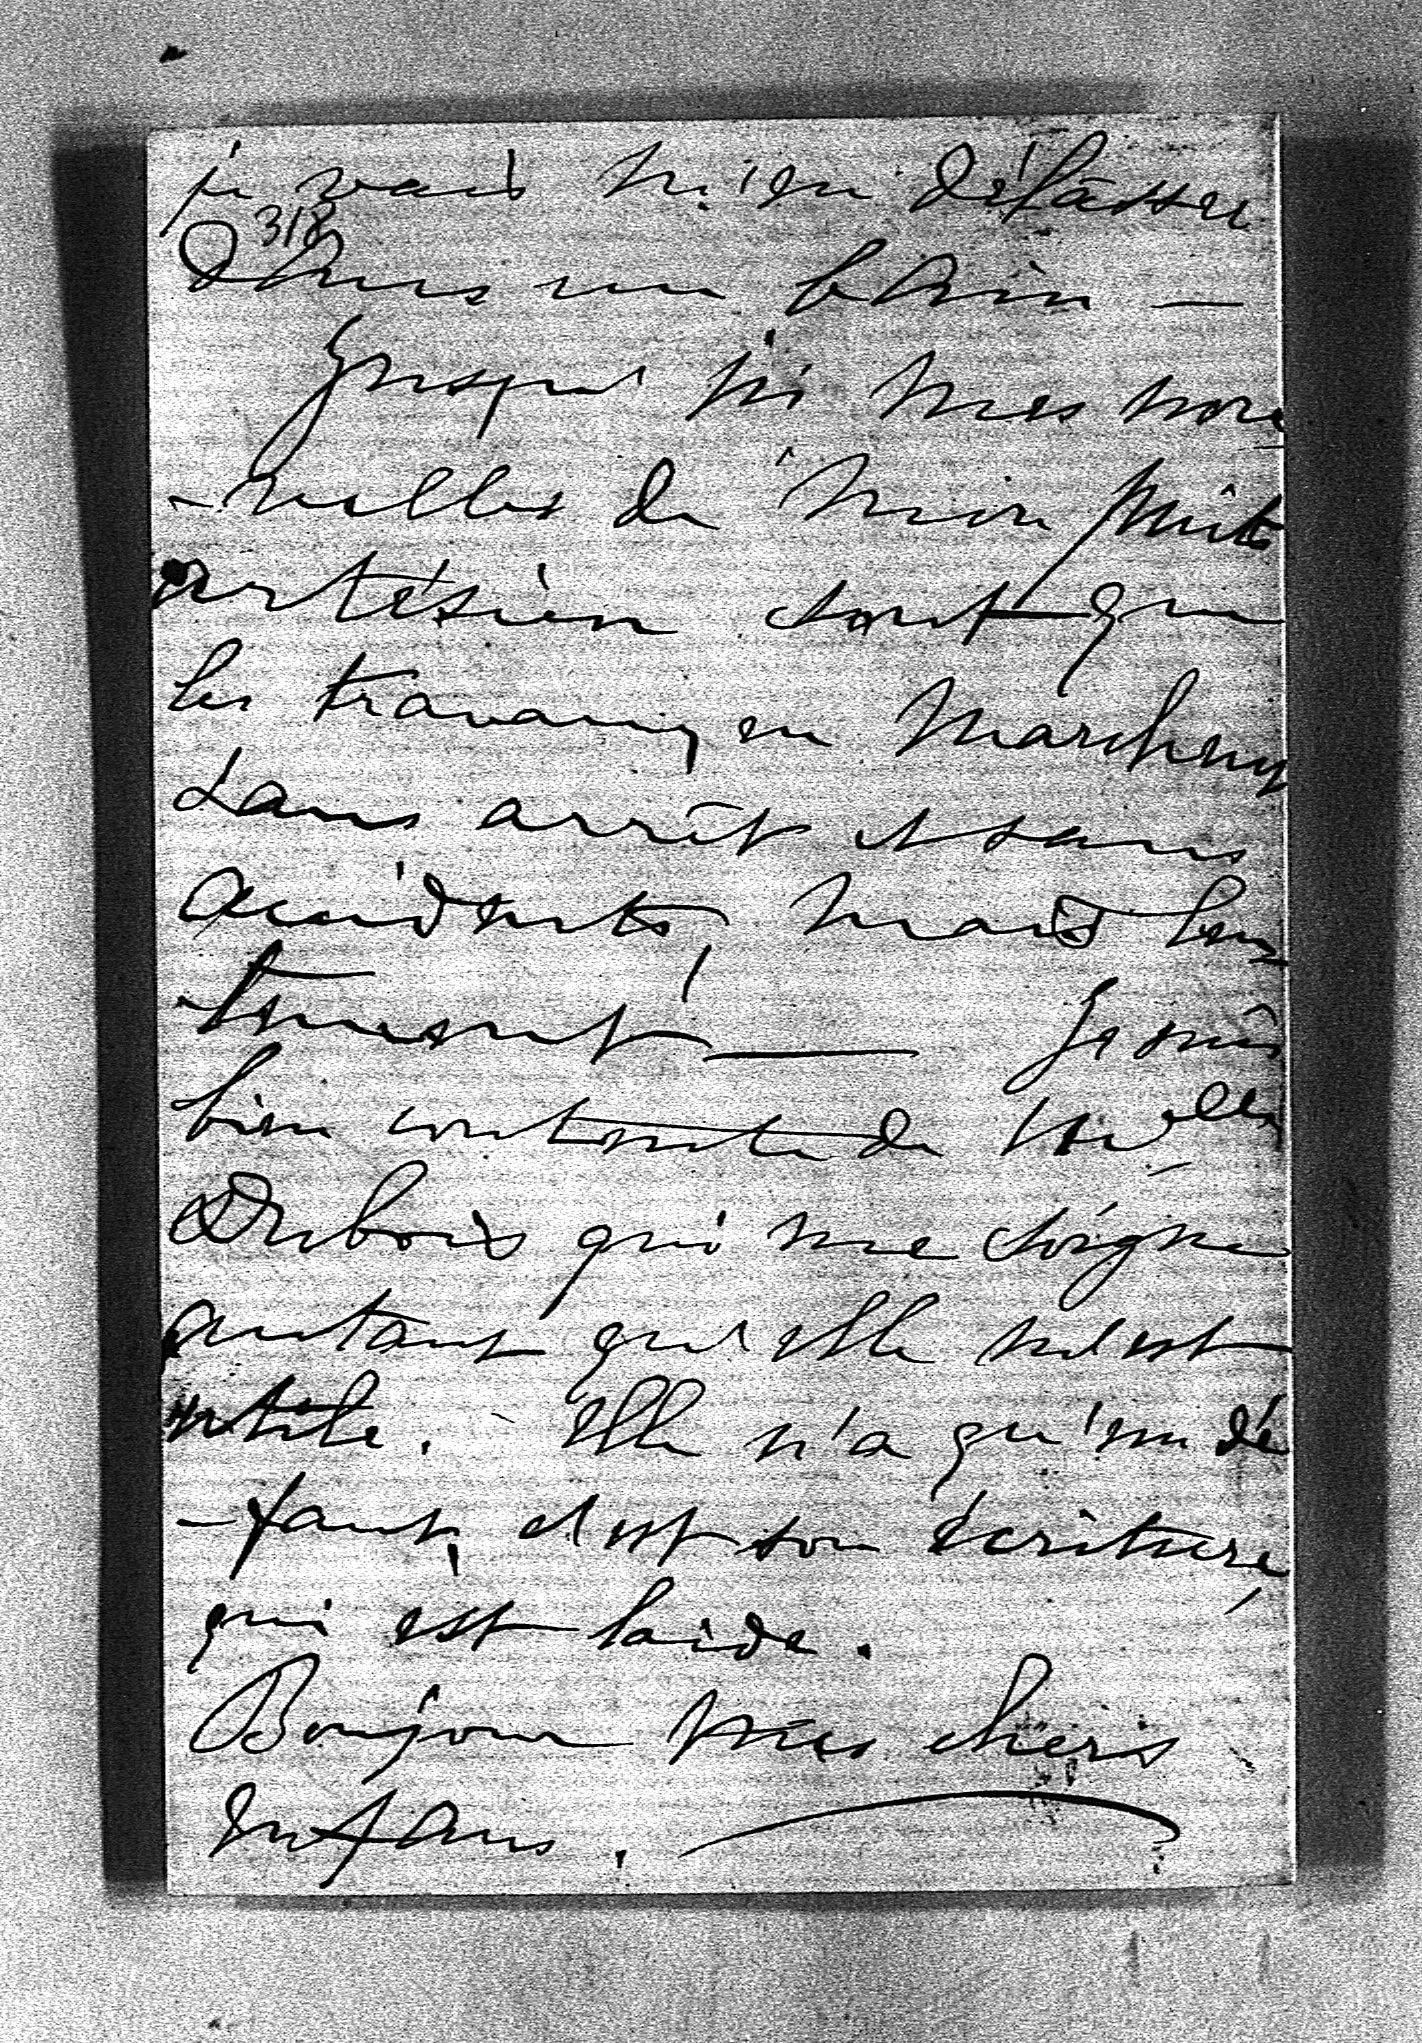 je vais m'en délâsser
318
dans un bain —
Jusqu'ici mes nou
-velles de mon puits
artésien sont que
les travaux en marchent
sans arrêt et sans
accidents, mais len
-tement! — Je suis
bien contente de Melle
Dubois qui me soigne
autant qu'elle m'est
utile. Elle n'a qu'un dé
-faut, c'est son écriture,
qui est laide.
Bonjour mes chers
enfans.